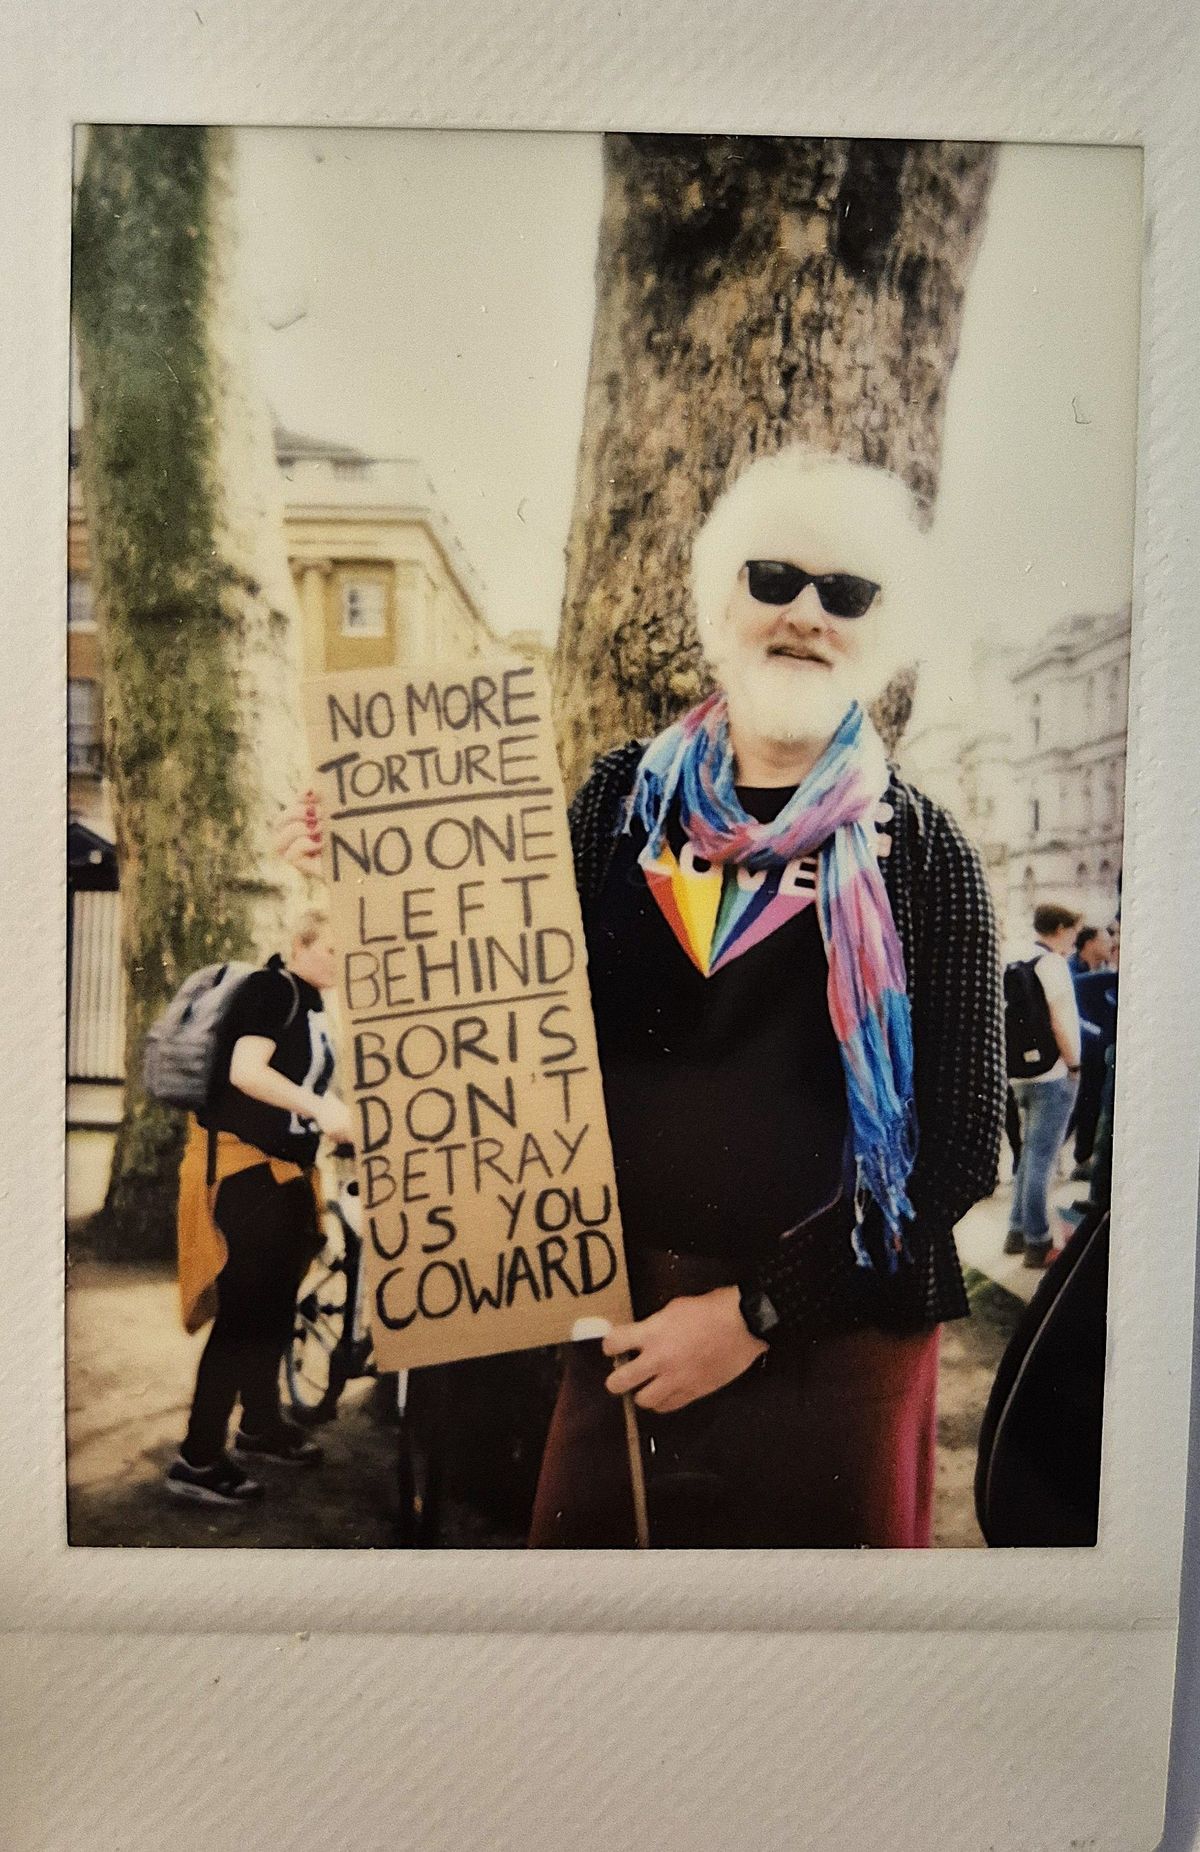 NO MORE
TORTURE
NO ONE
LEFT
BEHIND
BORIS
DON'T
BETRAY
US YOU
COWARD
LOVE